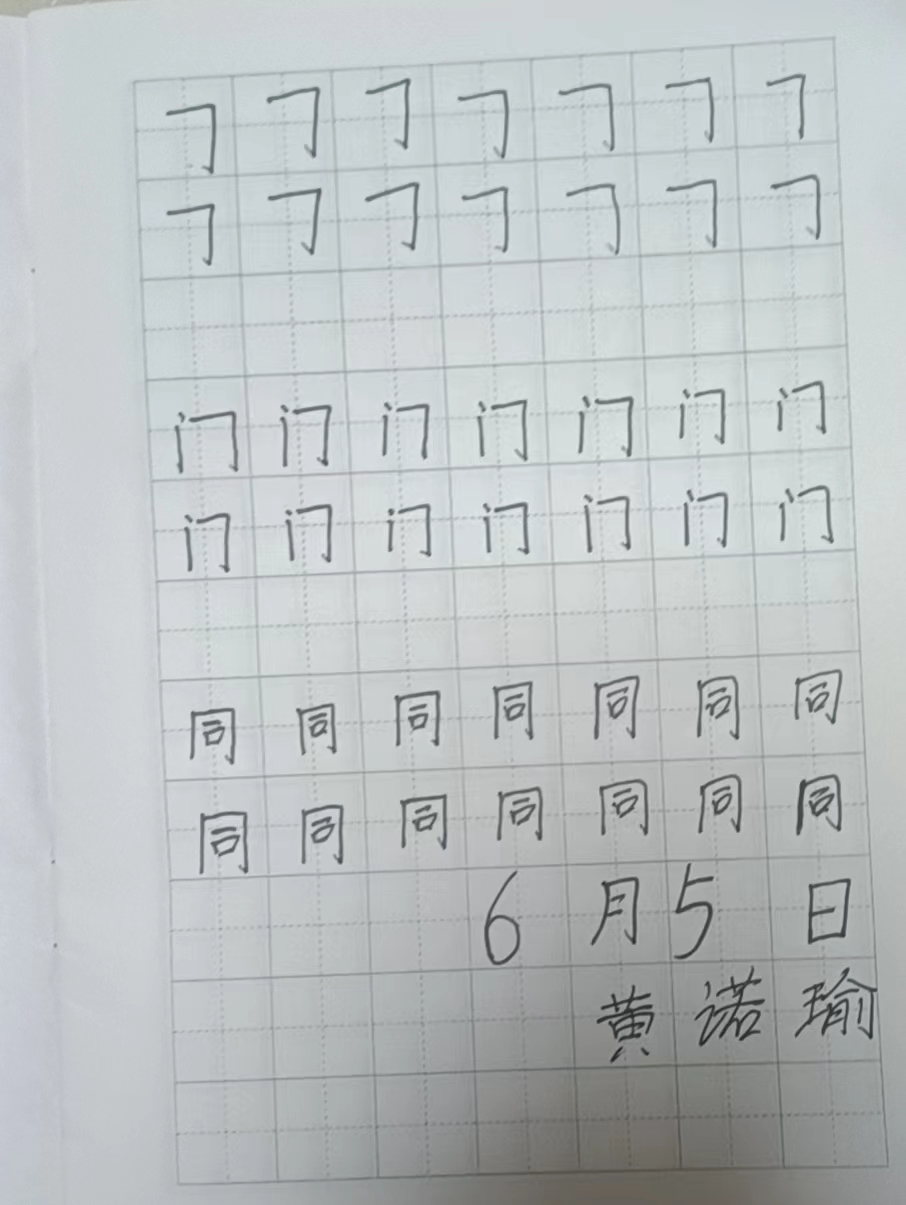 𠃌 𠃌 𠃌 𠃌 𠃌 𠃌 𠃌
𠃌 𠃌 𠃌 𠃌 𠃌 𠃌 𠃌
门 门 门 门 门 门 门
门 门 门 门 门 门 门
同 同 同 同 同 同 同
同 同 同 同 同 同 同
6 月 5 日
黄 诺 瑜